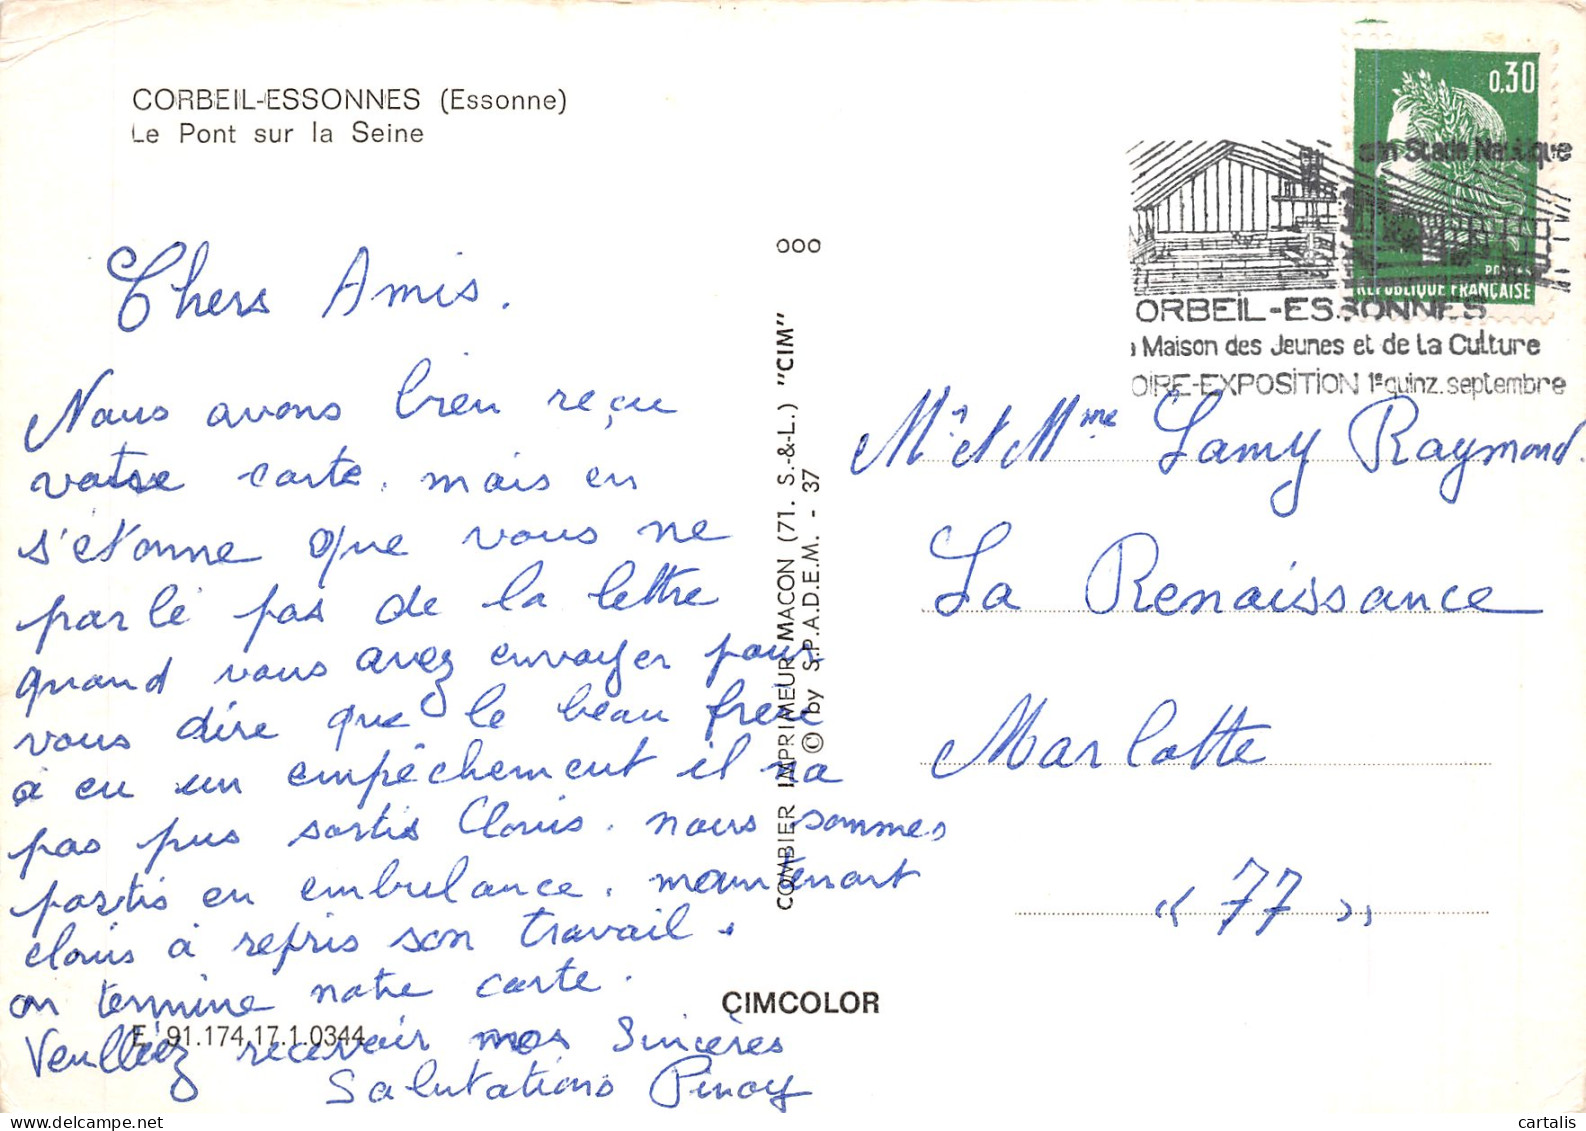 CORBEIL-ESSONNES (Essonne)
Le Pont sur la Seine
Chers Amis.
Nous avons bien reçu
votre carte. mais en
s'etonne que vous ne
parlé pas de la lettre
quand vous avez envoyer pour
vous dire que le beau frere
à eu un empêchement il na
pas pus sortis Clovis. nous sommes
partis en embulance. maintenant
clovis à repris son travail.
on termine notre carte.
Veuilliez recevoir mos Sincères
Salutations Pinoy
E. 91.174.17.1.0344
CIMCOLOR
ooo
COMBIER IMPRIMEUR MACON (71. S.-&-L.) "CIM"
© by S.P.A.D.E.M. - 37
0,30
POSTES
REPUBLIQUE FRANÇAISE
son Stade Nautique
ORBEIL-ESSONNES
a Maison des Jeunes et de La Culture
OIRE-EXPOSITION 1e quinz. septembre
Mr et Mme Lamy Raymond.
La Renaissance
Marlotte
« 77 »
cartalis
www.delcampe.net